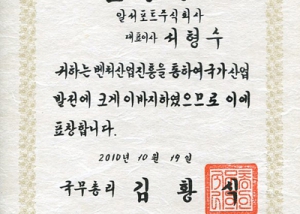 알서포트주식회사
대표이사 서형수
귀하는 벤처산업진흥을 통하여 국가 산업
발전에 크게 이바지하였으므로 이에
표창합니다.
2010년 10월 19일
국무총리 김황식